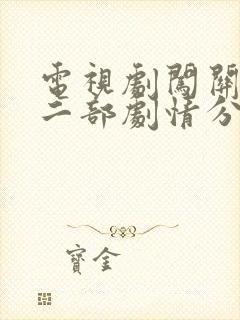 電視劇闖關
二部劇情分
寶金